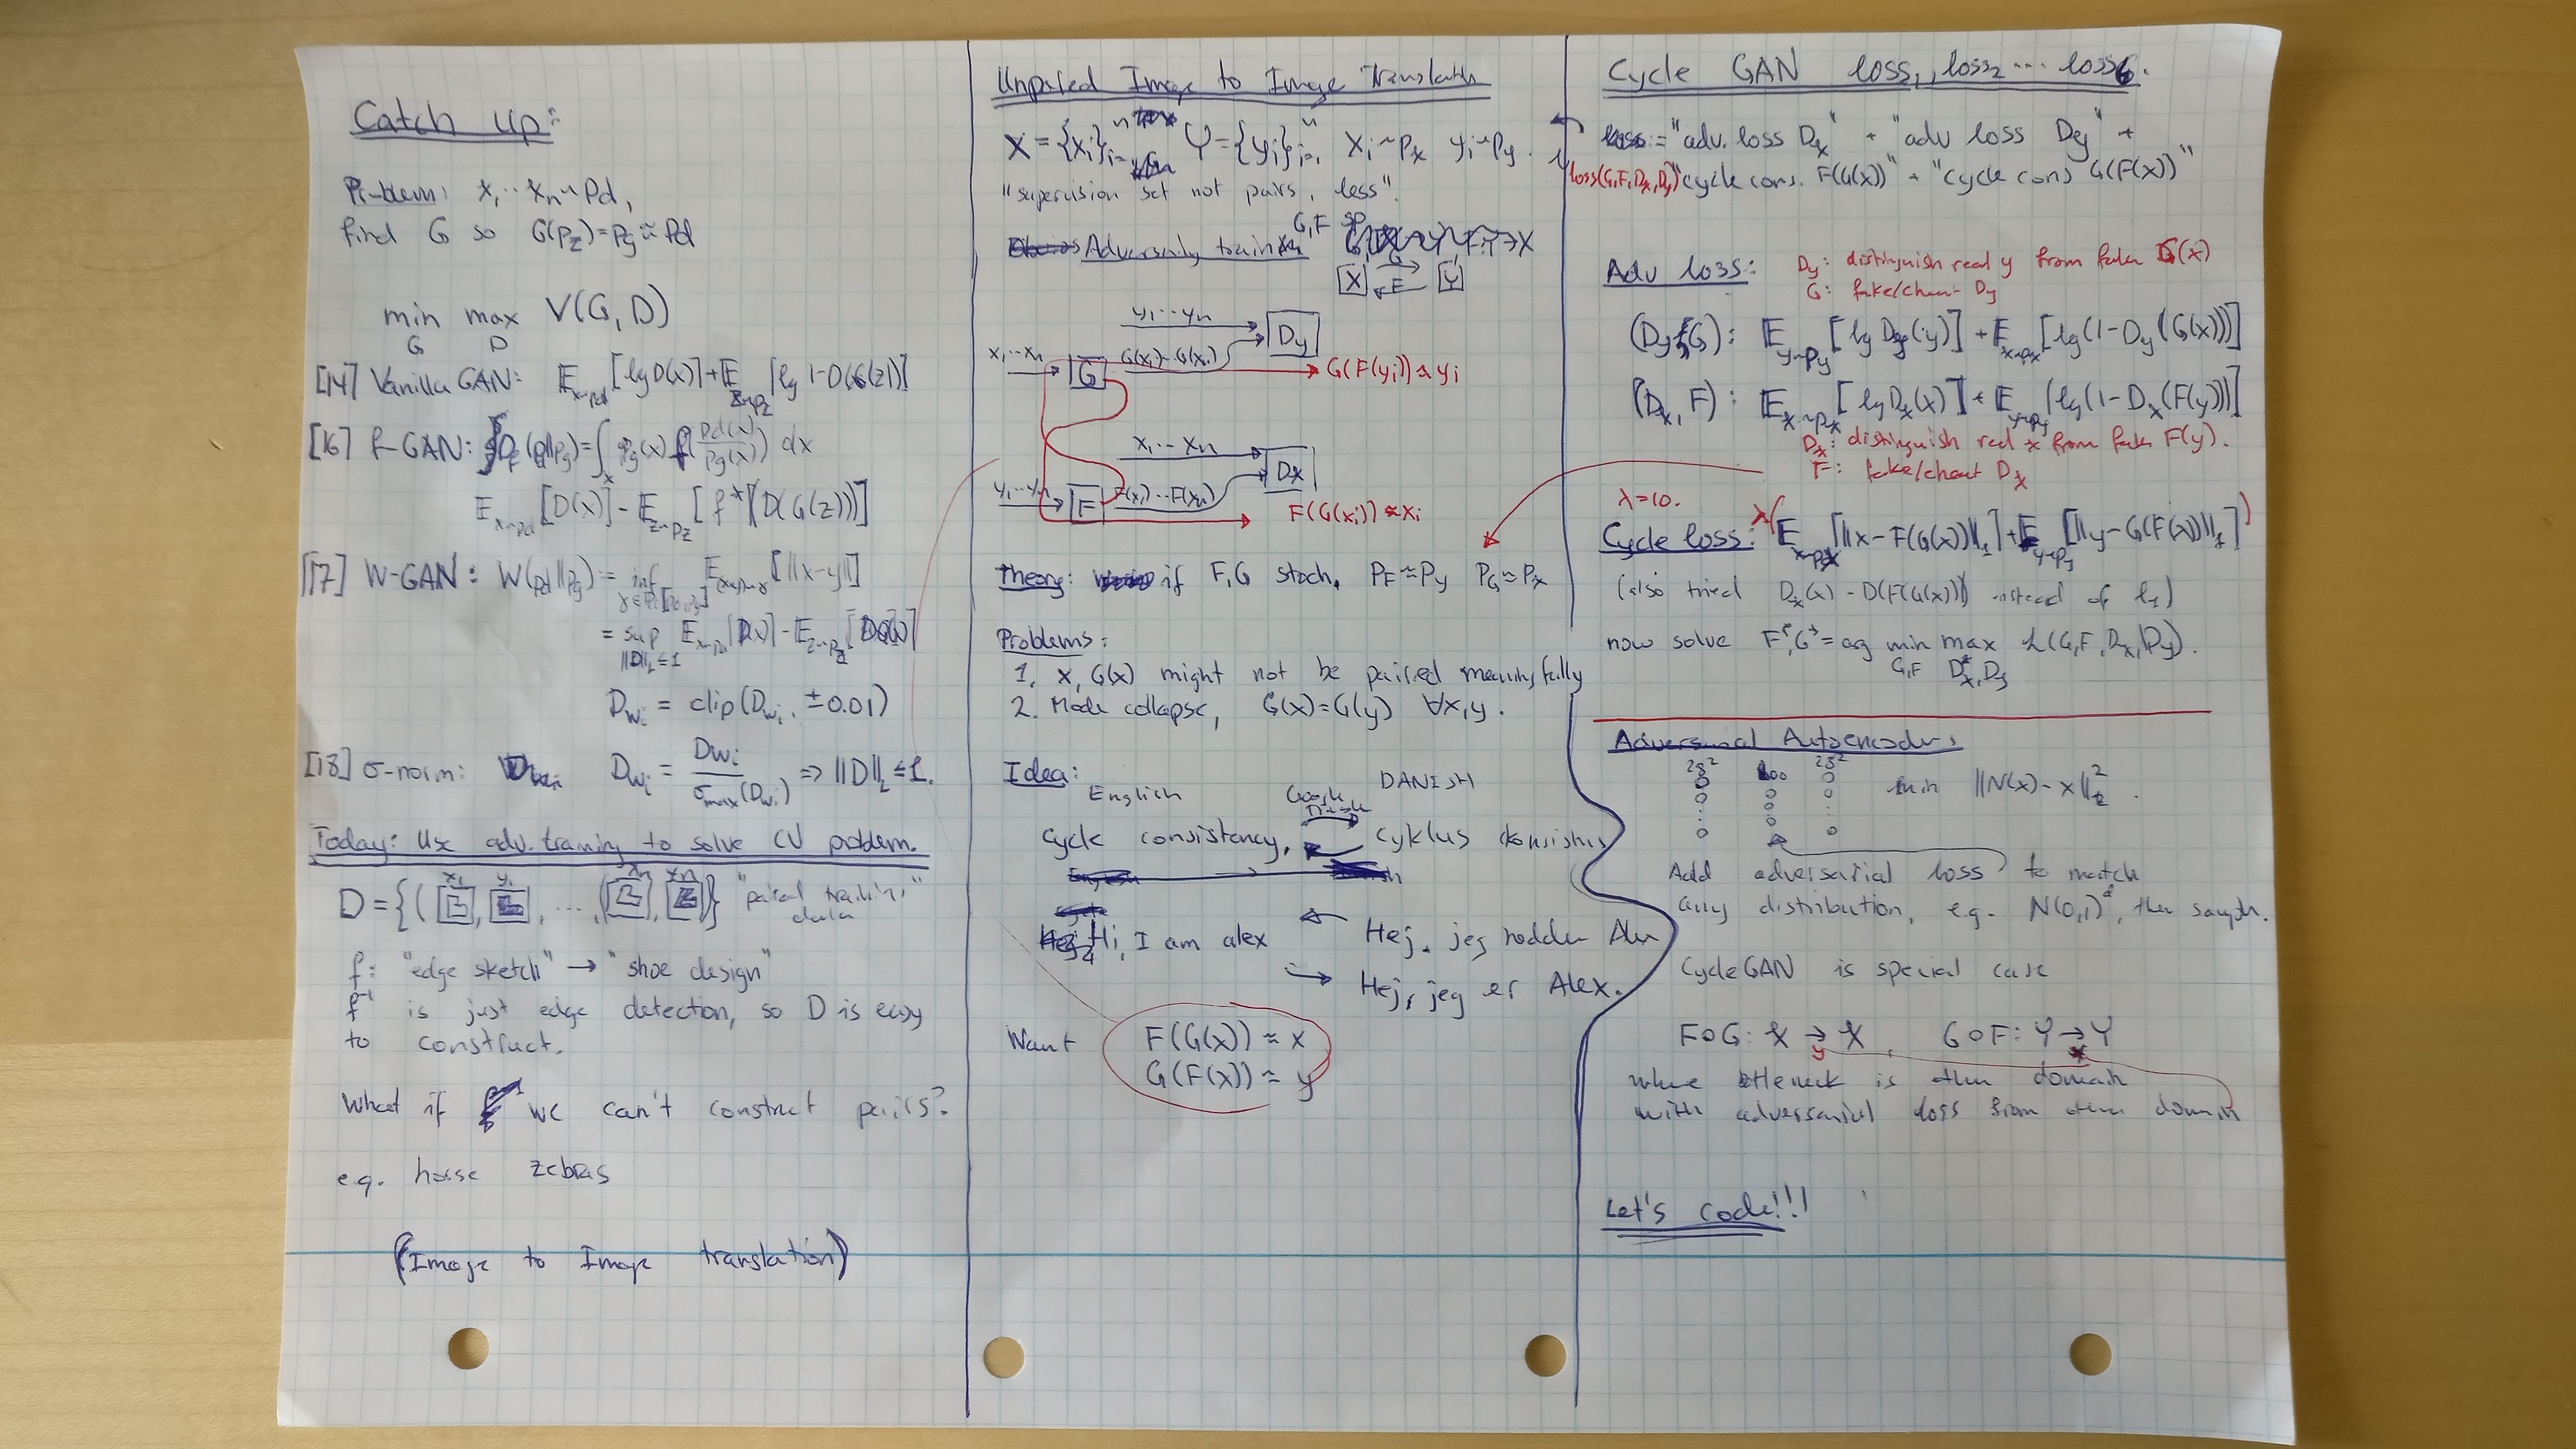 Catch up:
Problem: x₁ ... xₙ ~ Pd,
find G so G(p_z) = p_g ≈ Pd
min max V(G, D)
G D
[14] Vanilla GAN: E_{x~pd} [lg D(x)] + E_{z~p_z} [lg 1-D(G(z))]
[16] f-GAN: D_f (pd||p_g) = ∫_x p_g(x) f(pd(x)/p_g(x)) dx
E_{x~pd} [D(x)] - E_{z~p_z} [f*(D(G(z)))]
[17] W-GAN: W(pd||p_g) = inf E_{(x,y)~γ} [||x-y||]
= sup E_{x~pd} [D(x)] - E_{z~p_z} [D(G(z))]
||D||_L ≤ 1
D_{w_i} = clip(D_{w_i}, ±0.01)
[18] σ-norm: D_{w_i} = D_{w_i} / σ_max(D_{w_i}) => ||D||_L ≤ 1.
Today: Use adv. training to solve CV problem.
x₁ y₁ xₙ yₙ
D = {( , , ..., ( , )} "paired training"
data
f: "edge sketch" → "shoe design"
f⁻¹ is just edge detection, so D is easy
to construct.
What if we can't construct pairs?
e.g. horse zebras
(Image to Image translation)
Unpaired Image to Image Translation
X = {x_i}ⁿ_{i=1} Y = {y_i}ⁿ_{i=1} x_i ~ p_x y_i ~ p_y.
"supervision set not pairs, less".
Adversarily training G,F
X G Y
F
y₁ ... yₙ
Dy
x₁ ... xₙ G G(x₁) ... G(xₙ)
G(F(y_i)) ≈ y_i
x₁ ... xₙ
Dx
y₁ ... yₙ F F(x₁) ... F(xₙ)
F(G(x_i)) ≈ x_i
Theory: if F,G stoch. P_F ≈ P_y P_G ≈ P_x
Problems:
1. x, G(x) might not be paired meaningfully
2. Mode collapse, G(x) = G(y) ∀x,y.
Idea:
English DANISH
Cycle consistency, Cyklus
Hi, I am alex ← Hej, jeg hedder Alex
→ Hej, jeg er Alex.
Want F(G(x)) ≈ x
G(F(x)) ≈ y
Cycle GAN loss₁, loss₂ ... loss₆.
:= "adv. loss Dx" + "adv loss Dy" +
loss(G,F,Dx,Dy) "cycle cons. F(G(x))" + "cycle cons G(F(x))"
Adv loss: Dy: distinguish real y from fake G(x)
G: fake/cheat Dy
(Dy, G): E_{y~py} [lg Dy(y)] + E_{x~px} [lg(1-Dy(G(x)))]
(Dx, F): E_{x~px} [lg Dx(x)] + E_{y~py} [lg(1-Dx(F(y)))]
Dx: distinguish real x from fake F(y).
F: fake/cheat Dx
λ=10.
Cycle loss: λ(E_{x~px} [||x-F(G(x))||₁] + E_{y~py} [||y-G(F(x))||₁])
(also tried Dx(x) - D(F(G(x))) instead of l₁)
now solve F*,G* = arg min max L(G,F,Dx,Dy).
G,F Dx,Dy
Adversarial Autoencoders
28² 100 28²
min ||N(x) - x||²₂.
Add adversarial loss to match
any distribution, e.g. N(0,1)ᵈ, then sample.
CycleGAN is special case
F∘G: X → X, G∘F: Y → Y
y x
where bottleneck is other domain
with adversarial loss from other domain
Let's code!!!